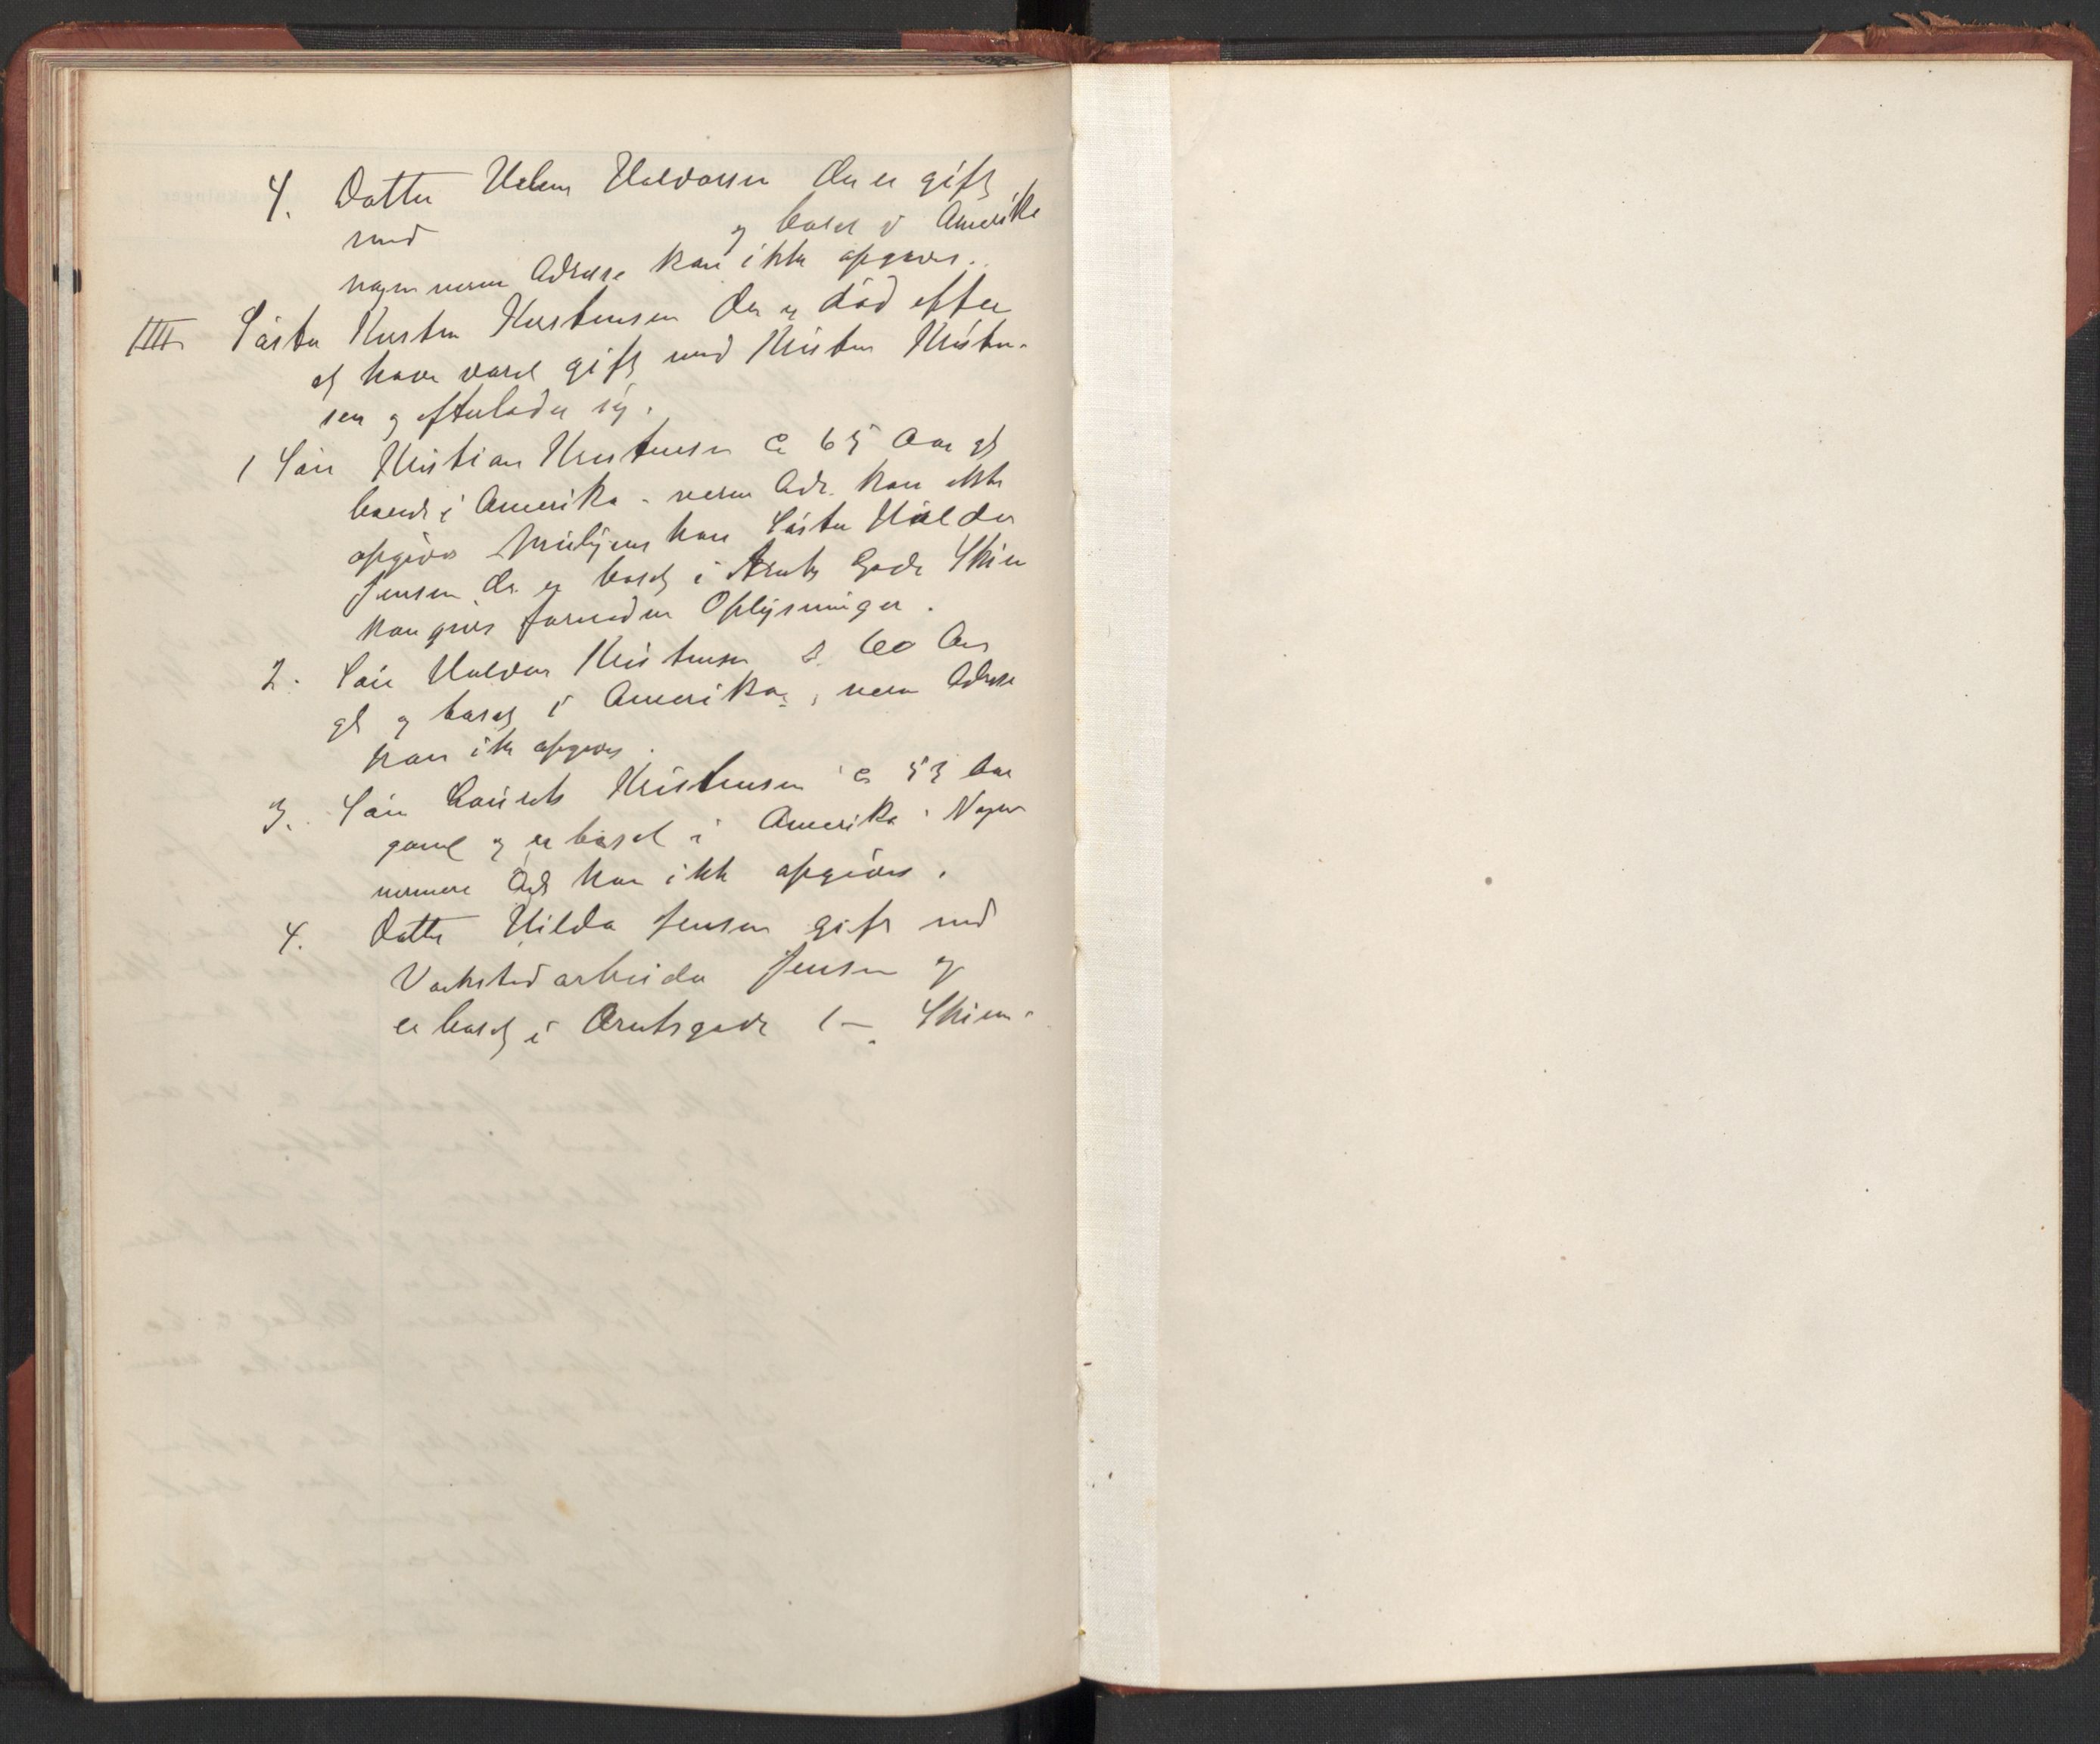 4. Datter Helene Halvorsen der er gift
med og bosat i Amerika
nogen nerm Adresse kan ikke opgives.
IIII Søster Kirsten Kristensen der er død efter
at have været gift med Kristen Kristen-
sen og efterlader sig.
1 Søn Kristian Kristensen c 65 Aar gl
boende i Amerika - nerm Adr. kan ikke
opgives Muligens kan Søster Hilda
Jensen der er bosat i Aruts Gade Skien
kan give fornøden Oplysninger.
2. Søn Halvor Kristensen c. 60 Aar
gl og bosat i Amerika, nerm Adresse
kan ikke opgives.
3. Søn Laurits Kristensen c 53 Aar
gaml og er bosat i Amerika. Nogen
nermere Adr kan ikke opgives.
4. Datter Hilda Jensen gift med
Verksted arbeider Jensen og
er bosat i Arutsgade 1 - Skien.